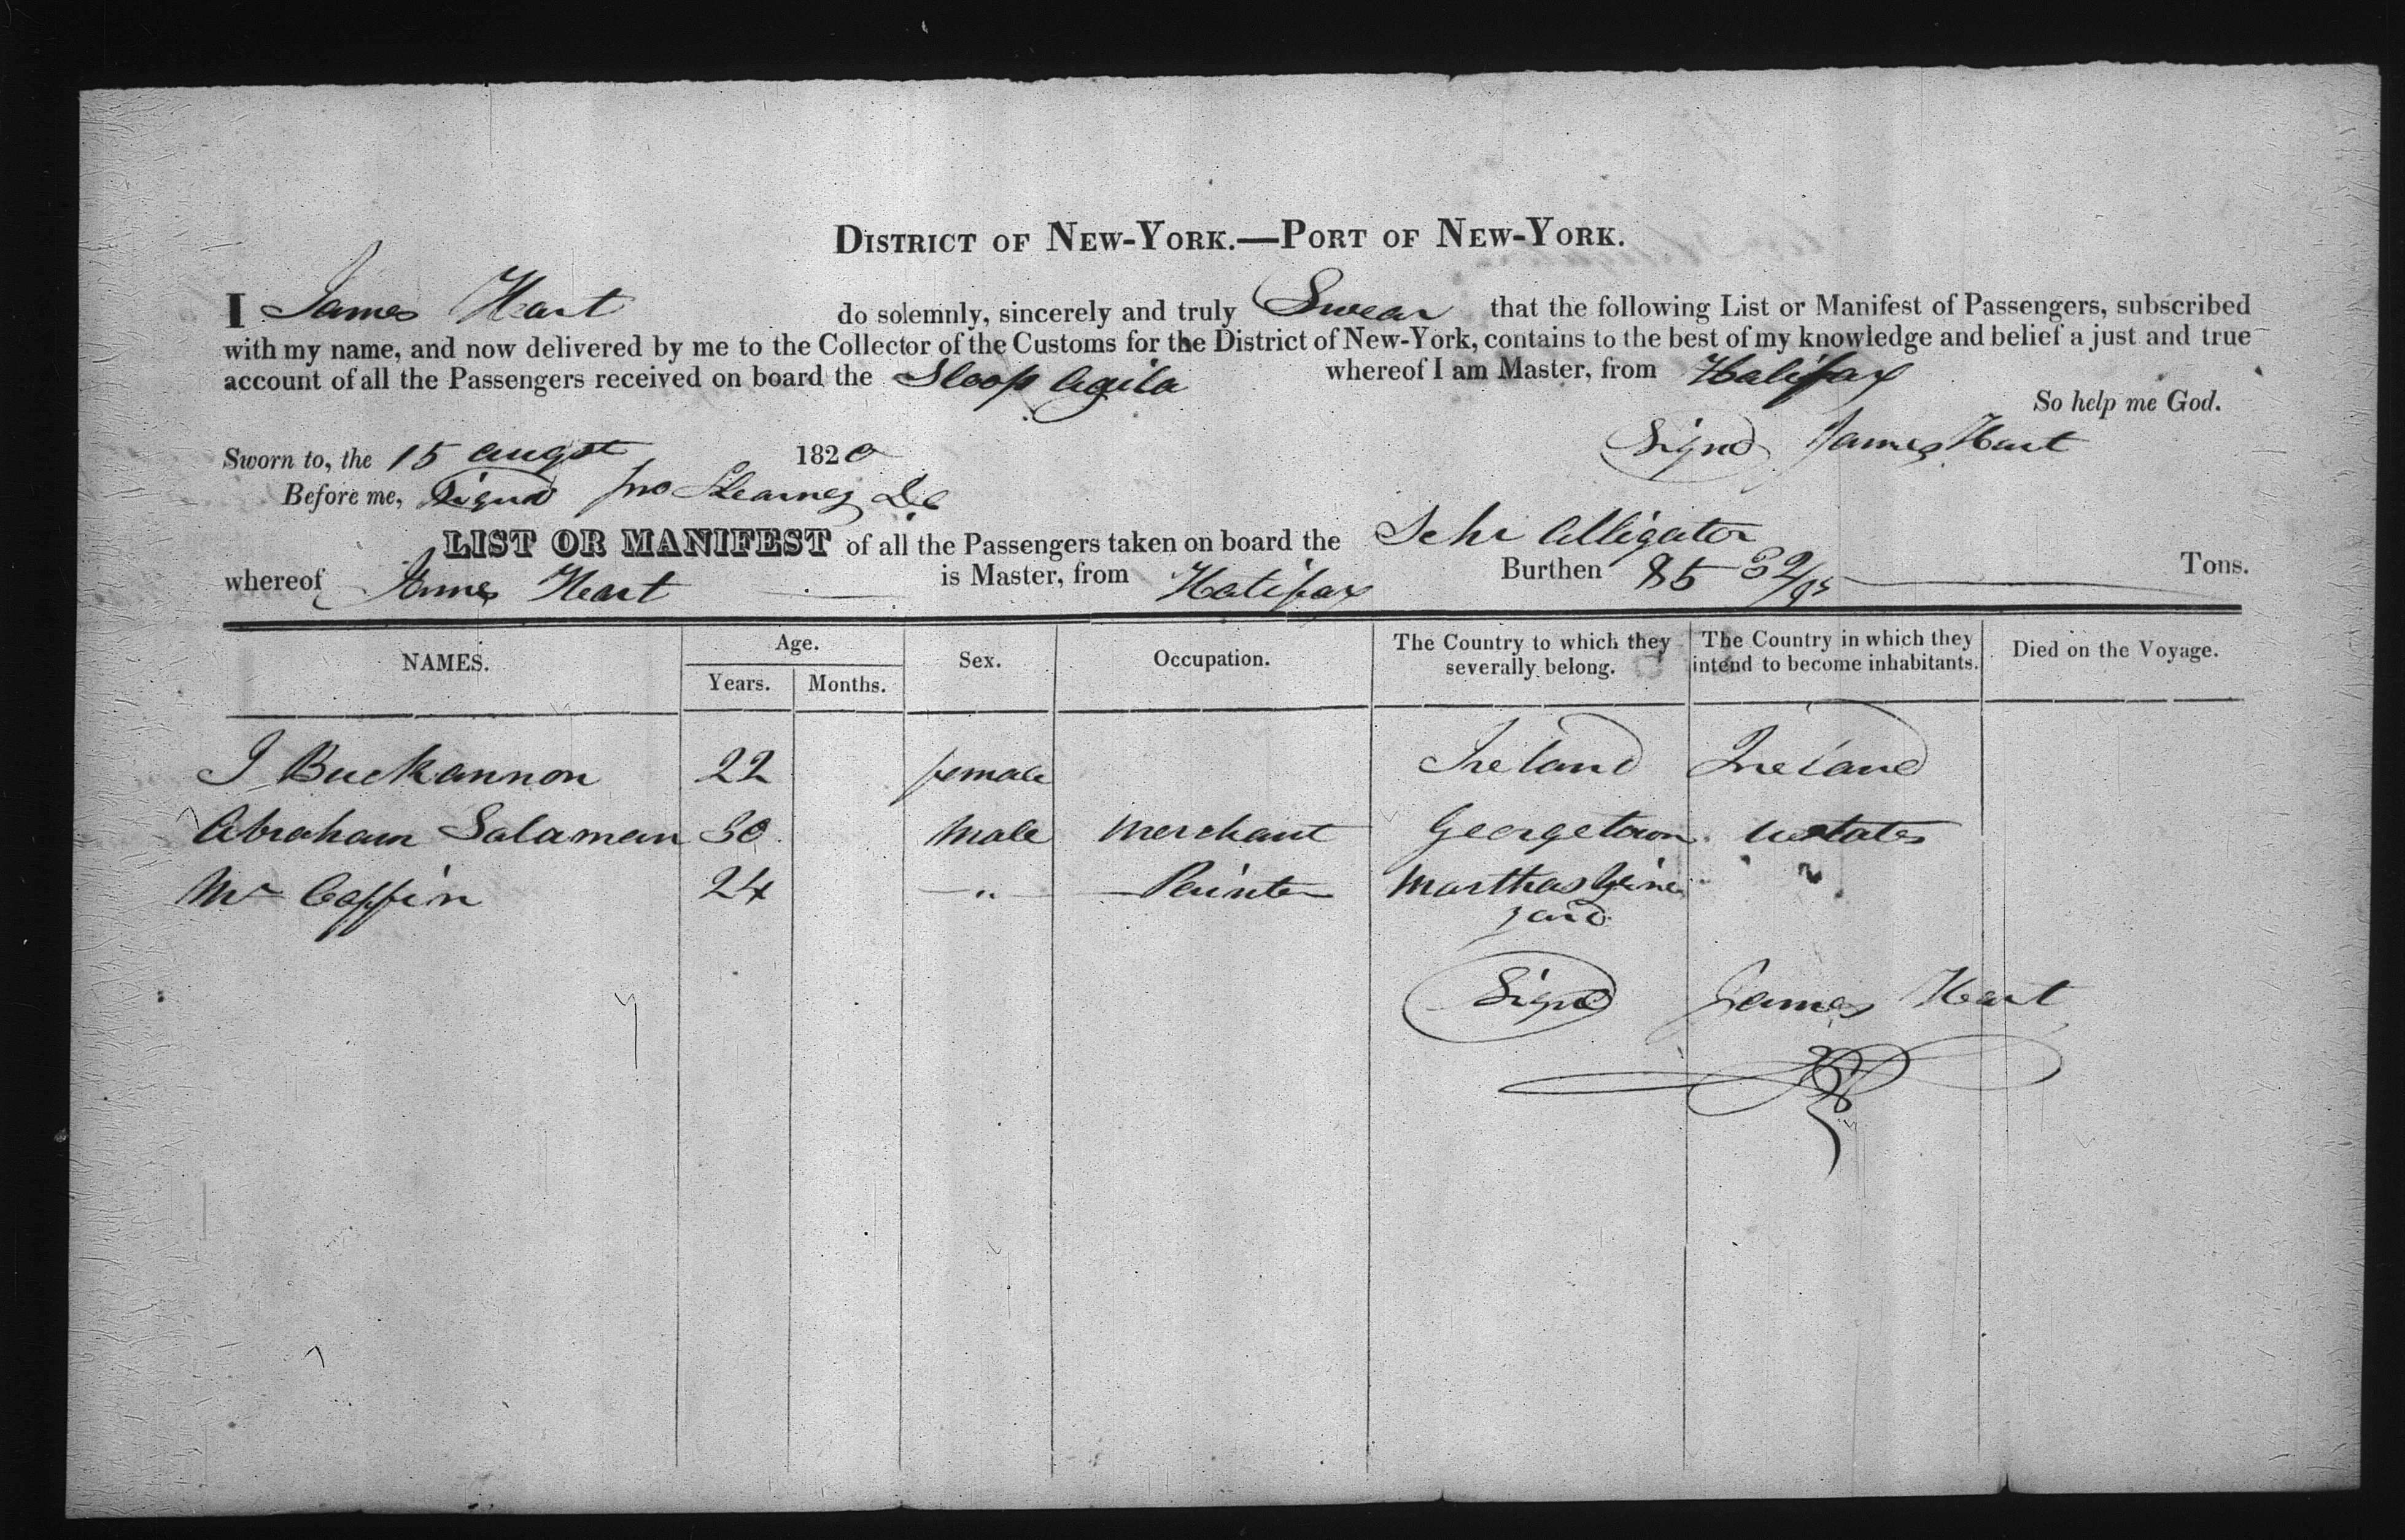 DISTRICT OF NEW-YORK.—PORT OF NEW-YORK.
I James Hart do solemnly, sincerely and truly Swear that the following List or Manifest of Passengers, subscribed
with my name, and now delivered by me to the Collector of the Customs for the District of New-York, contains to the best of my knowledge and belief a just and true
account of all the Passengers received on board the Sloop whereof I am Master, from Halifax
So help me God.
Signd James Hart
Sworn to, the 15 augst 1820
Before me, Signd Jno
LIST OR MANIFEST of all the Passengers taken on board the Schr Alligator
whereof James Hart is Master, from Halifax Burthen 85 Tons.
NAMES. Age. Sex. Occupation. The Country to which they severally belong. The Country in which they intend to become inhabitants. Died on the Voyage.
Years. Months.
J Buckannon 22 female Ireland Ireland
Abraham Salaman 30 Male Merchant Georgetown ustates
Mr Coffin 24 — " — Painter Marthas Vine "
yard
Signd James Hart